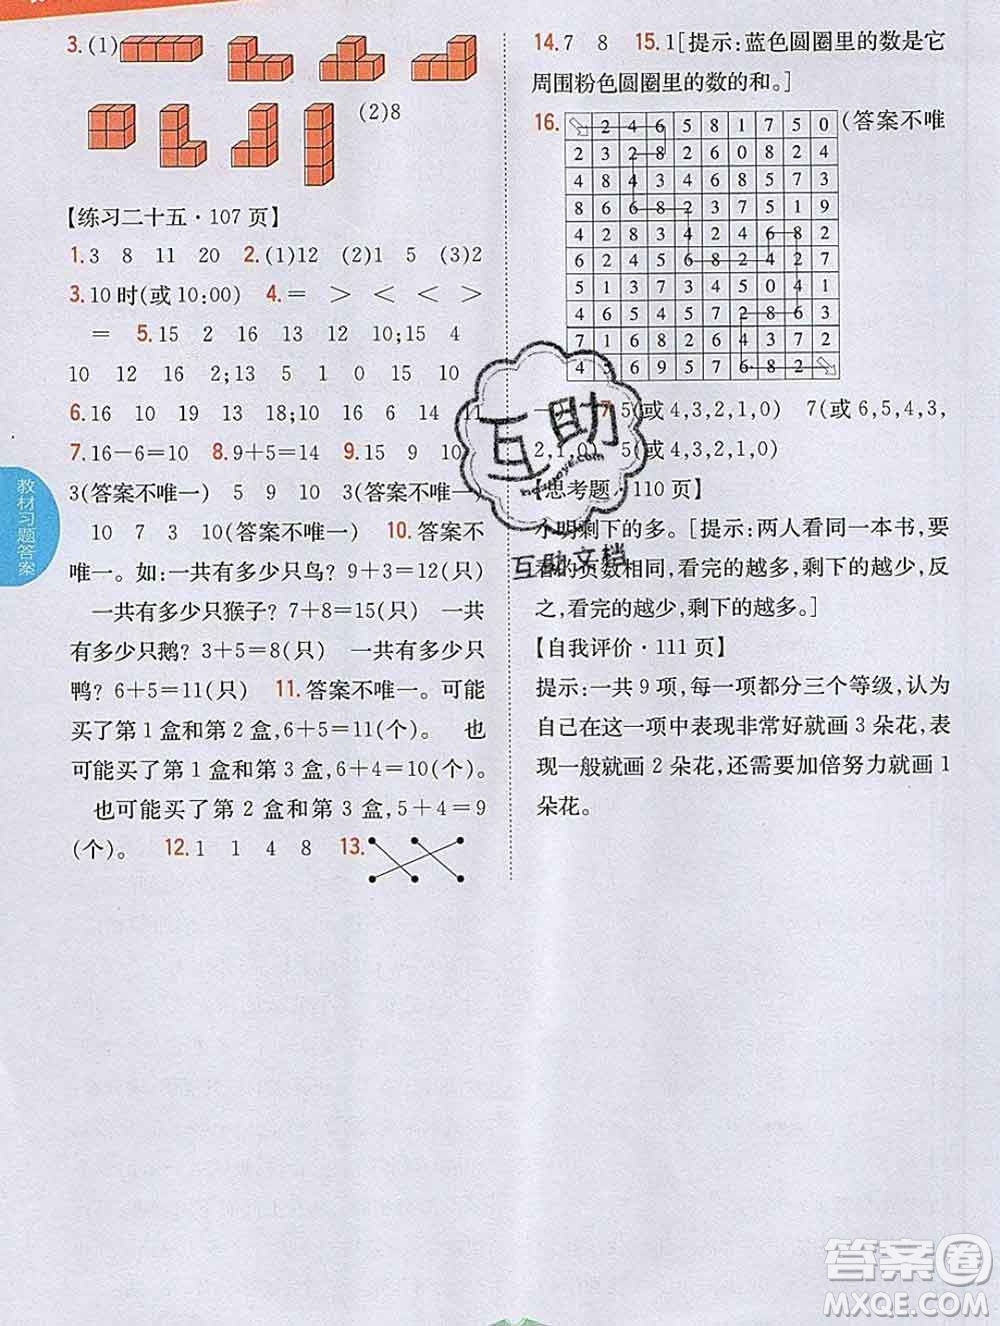 3.(1)
(2)8
【练习二十五·107 页】
1.3 8 11 20 2.(1)12 (2)1 5 (3)2
3.10 时(或 10:00) 4.= > < < >
= 5.15 2 16 12;10 15 4
10 12 2;13 5 1 0 17 10
6.16 10 19 13 18;10 16 8 5 11
7.16-6=10 8.9+5=14 9.15 9 10
3(答案不唯一) 5 9 10 3(答案不唯一)
10 7 3 10(答案不唯一) 10.答案不
唯一。如:一共有多少只鸟? 9+3=12(只)
一共有多少只猴子? 7+8=15(只) 一共
有多少只鹅? 3+5=8(只) 一共有多少只
鸭? 6+5=11(只) 11.答案不唯一。可能
买了第 1 盒和第 2 盒,6+5=11(个)。 也
可能买了第 1 盒和第 3 盒,6+4=10(个)。
也可能买了第 2 盒和第 3 盒,5+4=9
(个)。 12.1 1 4 8 13.
教材习题答案
14.7 8 15.1[提示:蓝色圆圈里的数是它
周围粉色圆圈里的数的和。]
16. (答案不唯
2 4 6 5 8 1 7 5 0
2 3 2 8 2 6 0 8 2 4
4 8 4 3 4 6 8 5 7 3
8 6 6 8 2 3 7 5 1 9
4 2 8 2 4 2 4 6 8 2
6 2 4 5 6 8 2 4 2 7
5 1 3 7 4 5 0 4 1
4 6 5 4 5 7 2 8 6 3
7 1 6 8 2 6 4 3 4 2
4 3 6 9 5 7 6 8 2
5(或 4,3,2,1,0) 7(或 6,5,4,3,
2,1,0)
【思考题·110 页】
小明剩下的多。[提示:两人看同一本书,要
看的页数相同,看完的越多,剩下的越少,反
之,看完的越少,剩下的越多。]
【自我评价·111 页】
提示:一共 9 项,每一项都分三个等级,认为
自己在这一项中表现非常好就画 3 朵花,表
现一般就画 2 朵花,还需要加倍努力就画 1
朵花。
互助
互助文档
答案圈
MXQE.COM